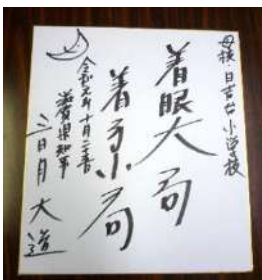 母校・日吉台小学校
着眼大局
着手小局
令和元年十月二十三日
滋賀県知事
三日月大造